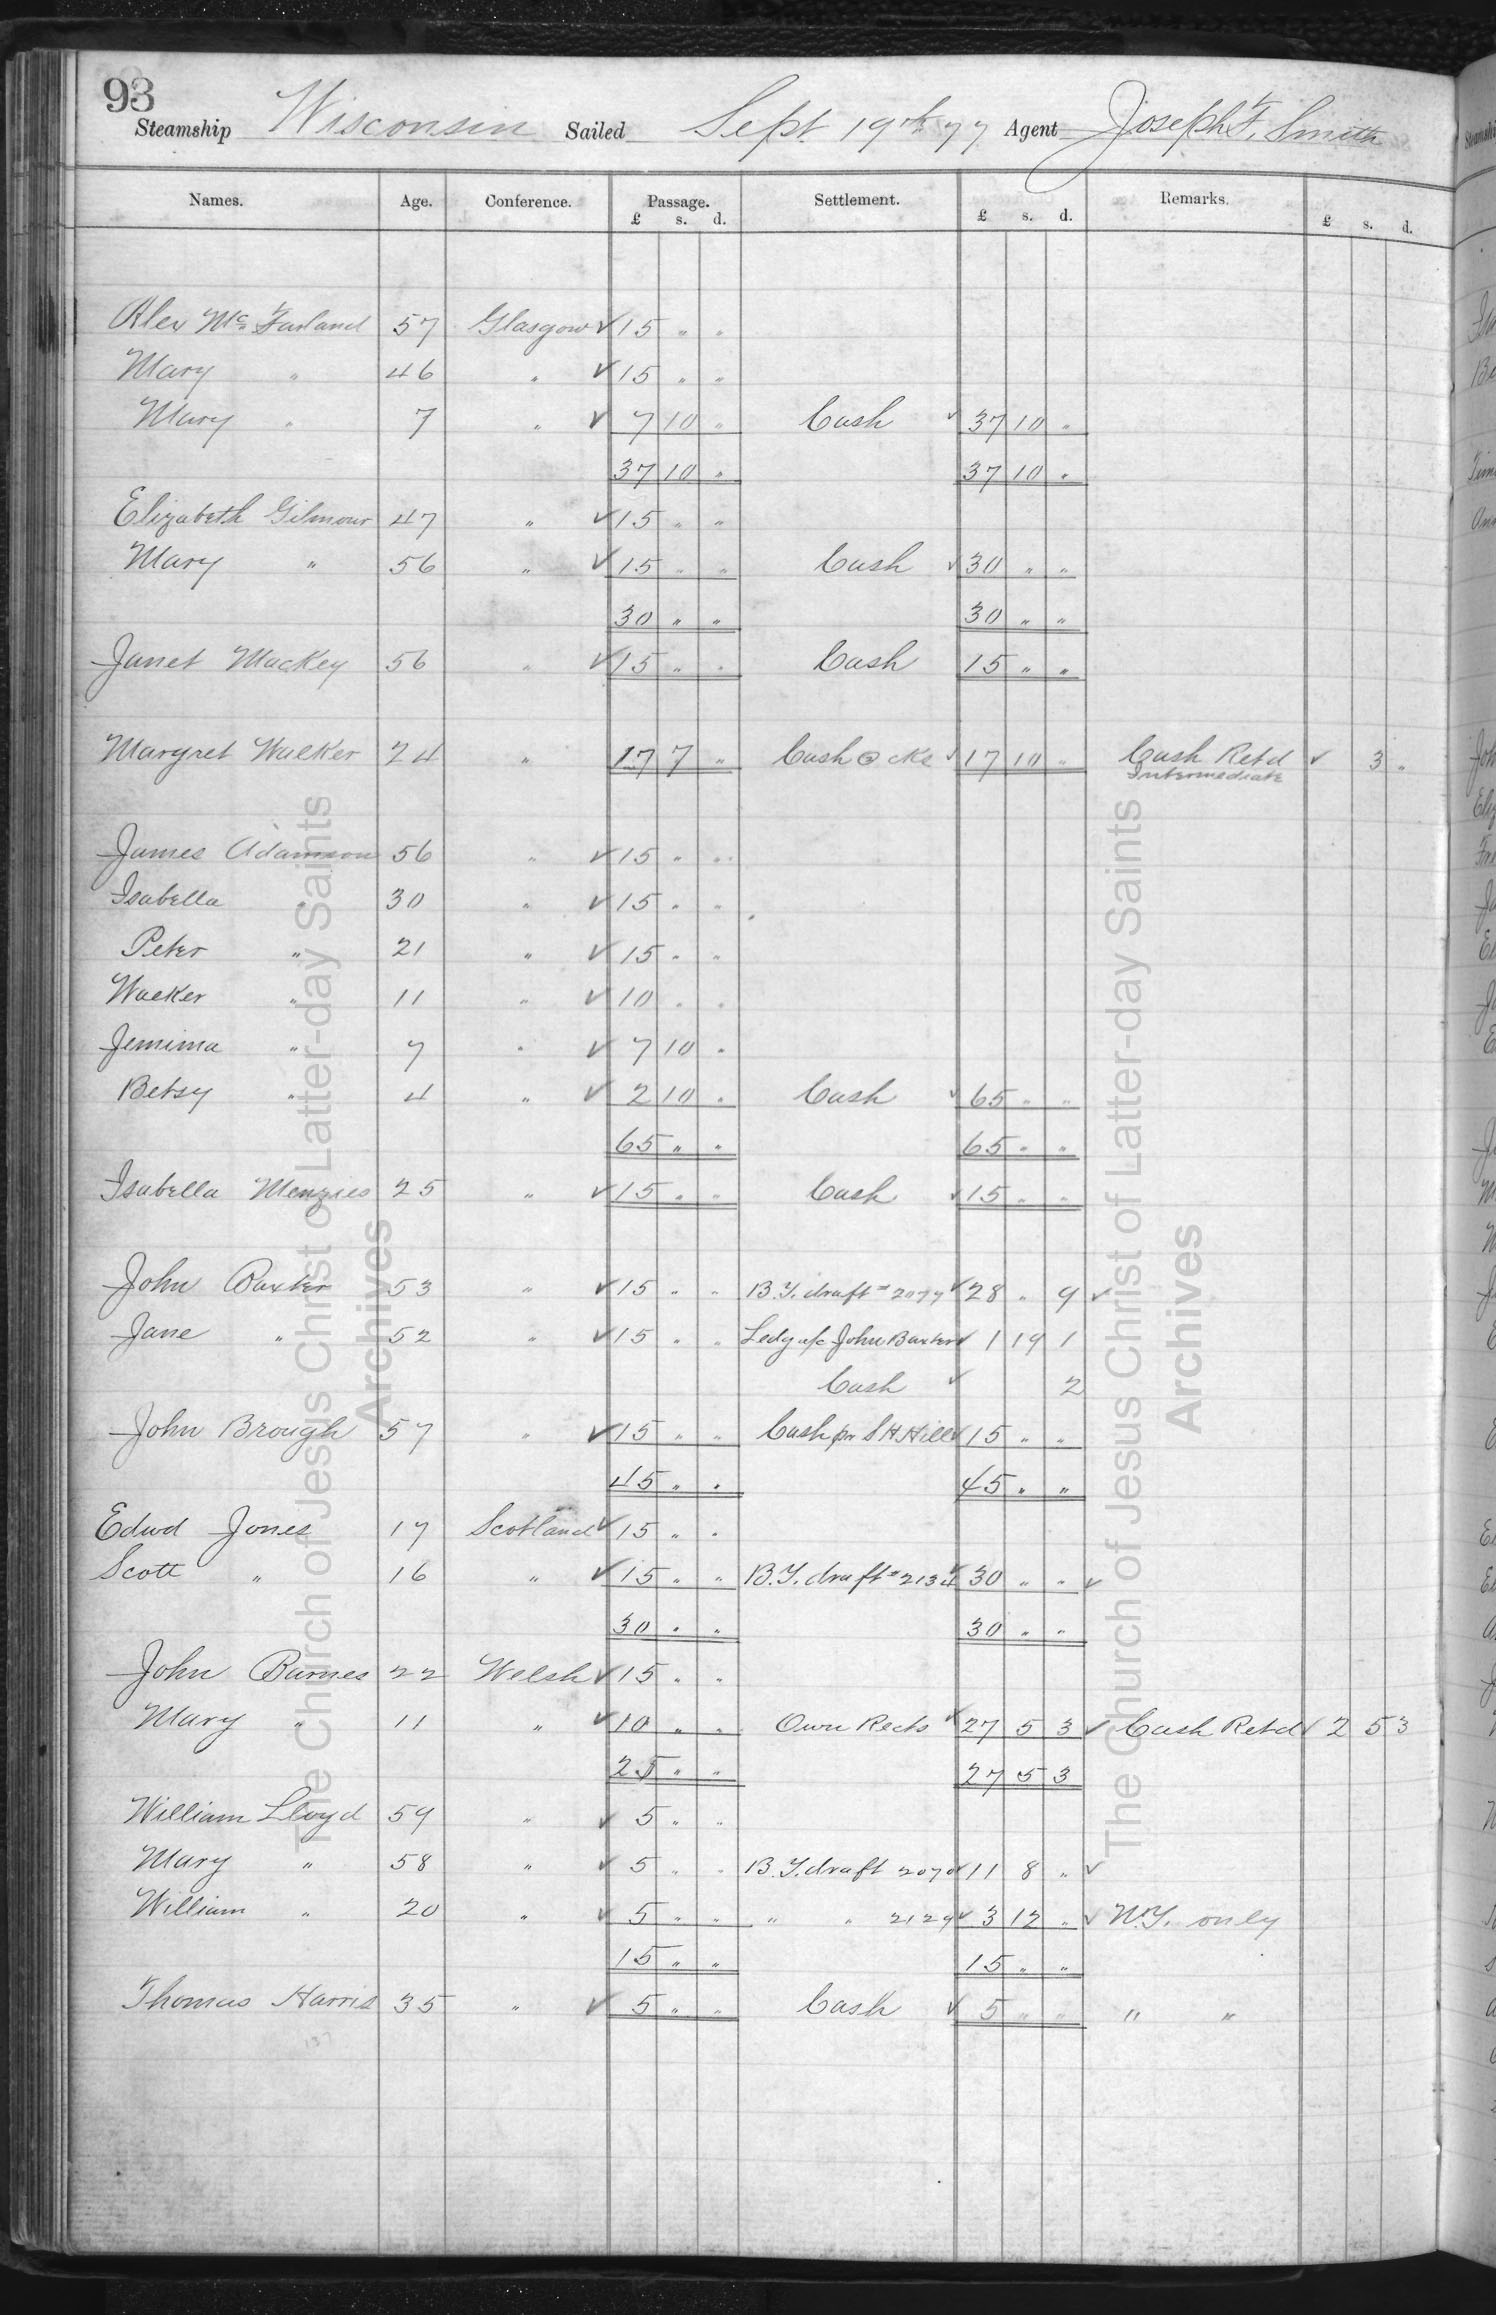 93
Steamship Wisconsin Sailed Sept. 19th 77 Agent Joseph F. Smith
Names. Age. Conference. Passage. Settlement. Remarks.
£ s. d. £ s. d. £ s. d.
Alex Mc Farland 57 Glasgow ✓ 15 " "
Mary " 46 " ✓ 15 " "
Mary " 7 " ✓ 7 10 " Cash ✓ 37 10 "
37 10 " 37 10 "
Elizabeth Gilmour 47 " ✓ 15 " "
Mary " 56 " ✓ 15 " " Cash ✓ 30 " "
30 " " 30 " "
Janet Mackey 56 " ✓ 15 " " Cash 15 " "
Margret Walker 24 " 17 7 " Cash @ cke ✓ 17 10 " Cash Retd ✓ 3 "
Intermediate
James Adamson 56 " ✓ 15 " "
Isabella " 30 " ✓ 15 " "
Peter " 21 " ✓ 15 " "
Walker " 11 " ✓ 10 " "
Jemima " 7 " ✓ 7 10 "
Betsy " 4 " ✓ 2 10 " Cash ✓ 65 " "
65 " " 65 " "
Isabella Menzies 25 " ✓ 15 " " Cash ✓ 15 " "
John Baxter 53 " ✓ 15 " " B.Y. draft # 2077 ✓ 28 " 9 ✓
Jane " 52 " ✓ 15 " " Ledg a/c John Baxter ✓ 1 19 1
Cash ✓ 2
John Brough 57 " ✓ 15 " " Cash pr S H Hill ✓ 15 " "
45 " " 45 " "
Edwd Jones 17 Scotland ✓ 15 " "
Scott " 16 " ✓ 15 " " B.Y. draft # 2134 ✓ 30 " " ✓
30 " " 30 " "
John Barnes 22 Welsh ✓ 15 " "
Mary " 11 " ✓ 10 " " Own Rects ✓ 27 5 3 ✓ Cash Retd ✓ 2 5 3
25 " " 27 5 3
William Lloyd 59 " ✓ 5 " "
Mary " 58 " ✓ 5 " " B.Y. draft 2070 ✓ 11 8 " ✓
William " 20 " ✓ 5 " " " " 2129 ✓ 3 12 " ✓ N.Y. only
15 " " 15 " "
Thomas Harris 35 " ✓ 5 " " Cash ✓ 5 " " " "
137
The Church of Jesus Christ of Latter-day Saints
Archives
The Church of Jesus Christ of Latter-day Saints
Archives